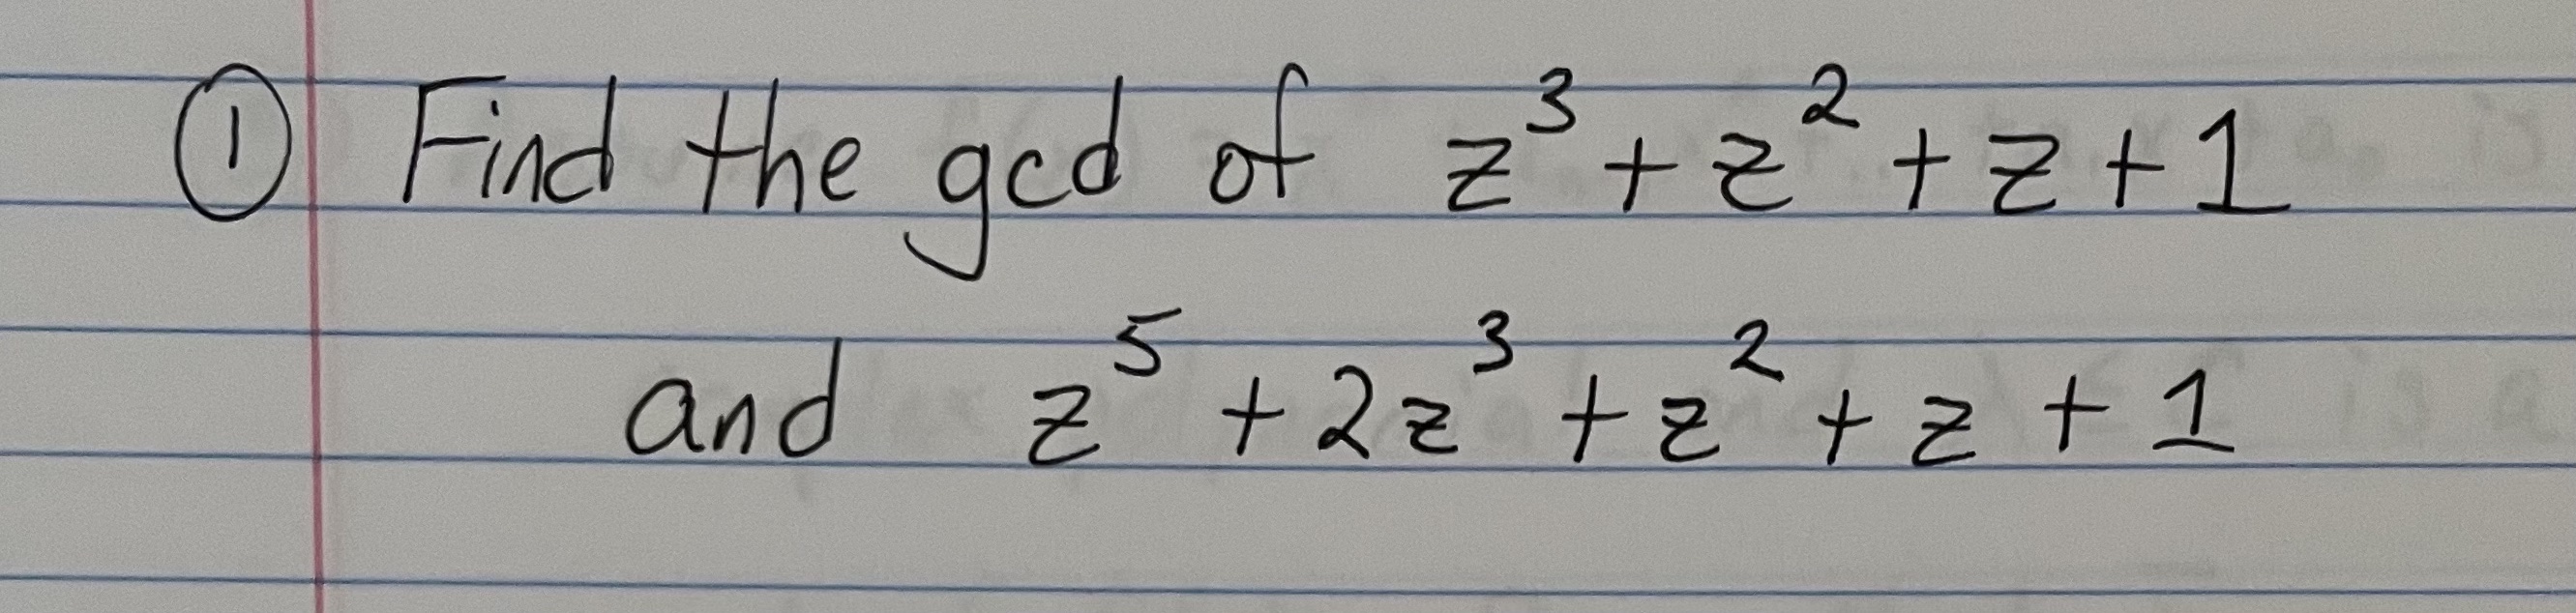 ① Find the gcd of z³ + z² + z + 1
and z⁵ + 2z³ + z² + z + 1